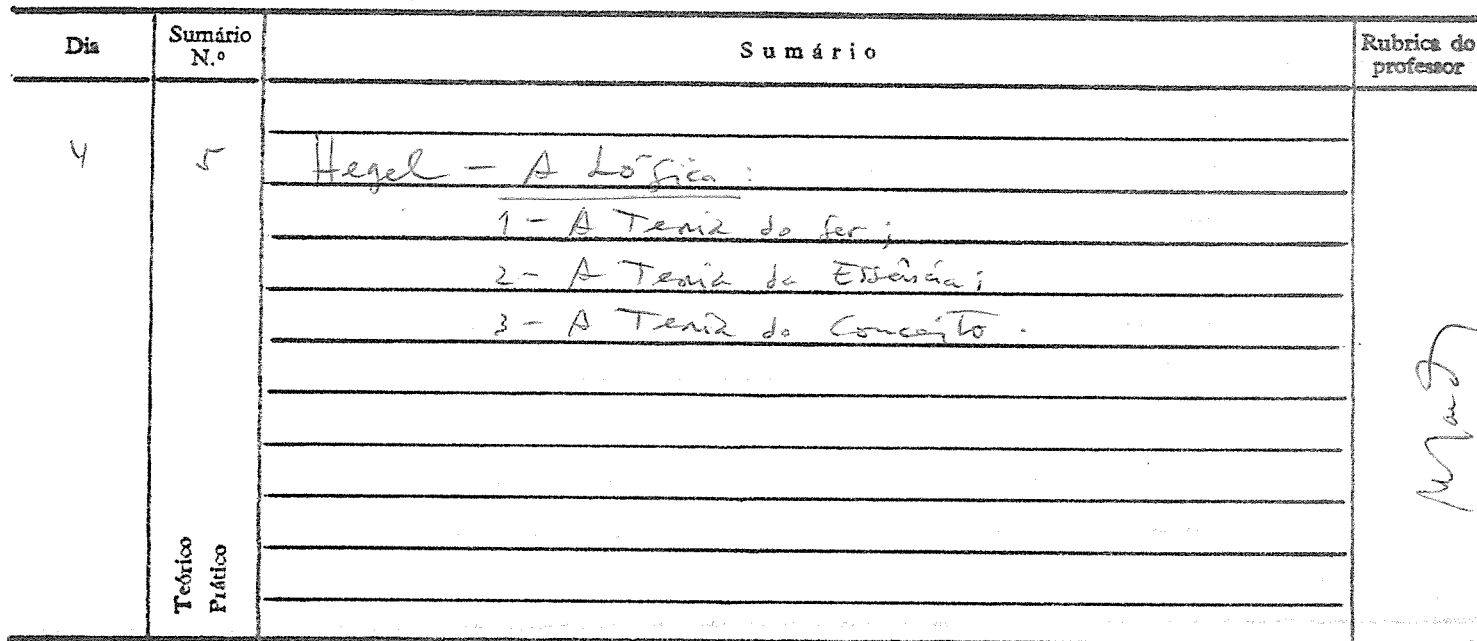 Dia
Sumário N.º
Sumário
Rubrica do professor
4
5
Hegel - A Lógica:
1 - A Teoria do Ser;
2 - A Teoria da Essência;
3 - A Teoria do Conceito.
Teórico
Prático